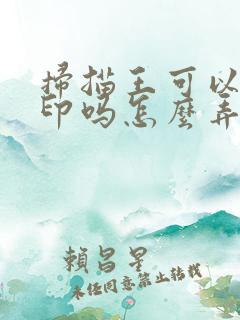 掃描王可以
印吗怎麼弄
賴昌星
未经同意禁止转载